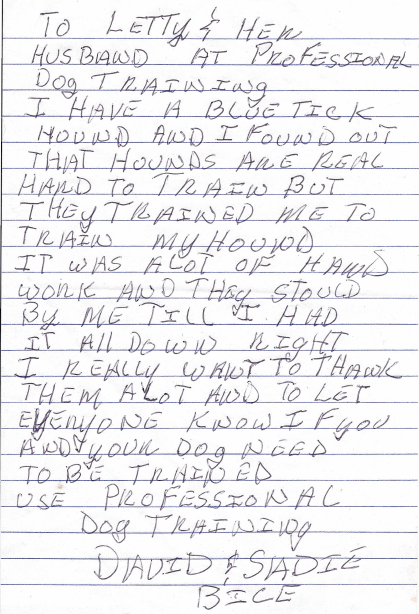 TO LETTY & HER
HUSBAND AT PROFESSIONAL
DOg TRAINING
I HAVE A BLUE TICK
HOUND AND I FOUND OUT
THAT HOUNDS ARE REAL
HARD TO TRAIN BUT
THEY TRAINED ME TO
TRAIN MY HOUND
IT WAS ALOT OF HARD
WORK AND THEY STOUD
BY ME TILL I HAD
IT All DOWN RIGHT
I REALLY WANT TO THANK
THEM ALOT AND TO LET
EVERYONE KNOW IF YOU
AND YOUR DOG NEED
TO BE TRAINED
USE PROFESSIONAL
DOg TRAINING
DAVID & SADIE
BICE